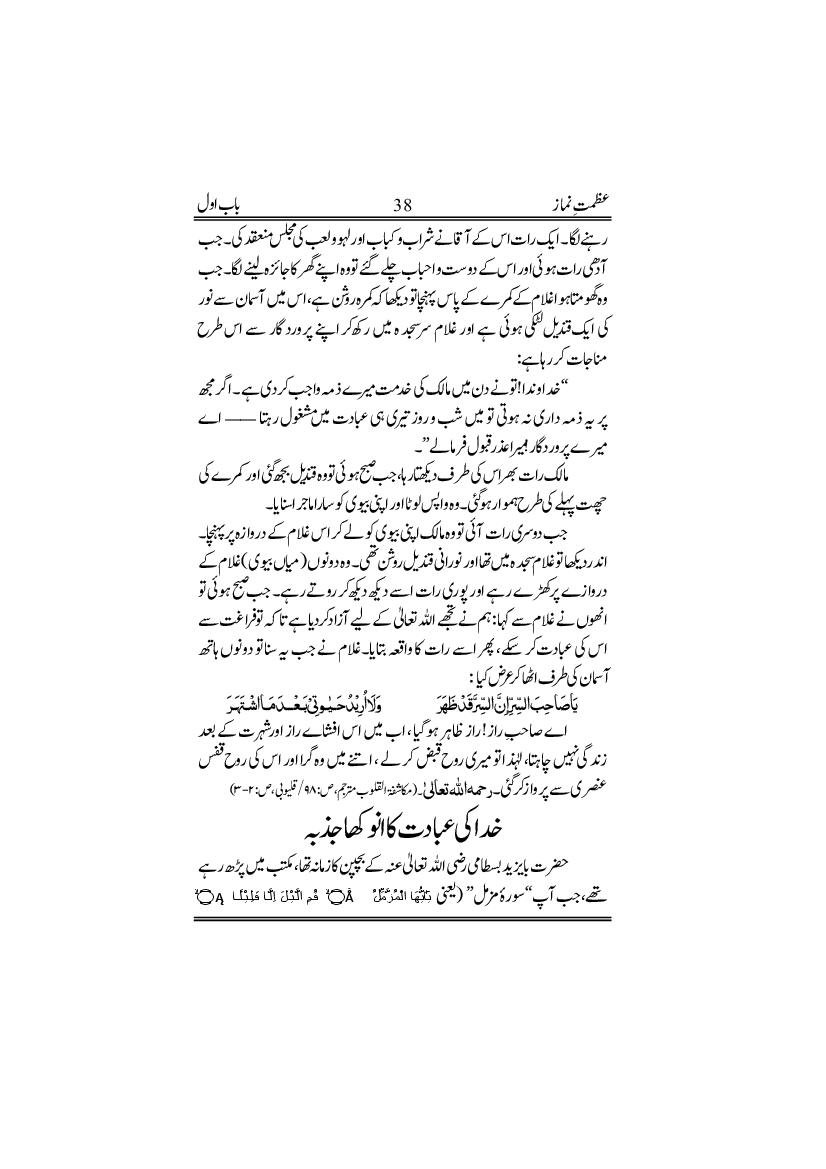 عظمتِ نماز 38 باب اول
رہنے لگا۔ ایک رات اس کے آقا نے شراب و کباب اور لہو و لعب کی مجلس منعقد کی۔ جب
آدھی رات ہوئی اور اس کے دوست و احباب چلے گئے تو وہ اپنے گھر کا جائزہ لینے لگا۔ جب
وہ گھومتا ہوا غلام کے کمرے کے پاس پہنچا تو دیکھا کہ کمرہ روشن ہے، اس میں آسمان سے نور
کی ایک قندیل لٹکی ہوئی ہے اور غلام سر سجدہ میں رکھ کر اپنے پروردگار سے اس طرح
مناجات کر رہا ہے:
“خداوندا! تو نے دن میں مالک کی خدمت میرے ذمہ واجب کر دی ہے۔ اگر مجھ
پر یہ ذمہ داری نہ ہوتی تو میں شب و روز تیری ہی عبادت میں مشغول رہتا —— اے
میرے پروردگار! میرا عذر قبول فرما لے”۔
مالک رات بھر اس کی طرف دیکھتا رہا، جب صبح ہوئی تو وہ قندیل بجھ گئی اور کمرے کی
چھت پہلے کی طرح ہموار ہو گئی۔ وہ واپس لوٹا اور اپنی بیوی کو سارا ماجرا سنایا۔
جب دوسری رات آئی تو وہ مالک اپنی بیوی کو لے کر اس غلام کے دروازہ پر پہنچا۔
اندر دیکھا تو غلام سجدہ میں تھا اور نورانی قندیل روشن تھی۔ وہ دونوں (میاں بیوی) غلام کے
دروازے پر کھڑے رہے اور پوری رات اسے دیکھ دیکھ کر روتے رہے۔ جب صبح ہوئی تو
انھوں نے غلام سے کہا: ہم نے تجھے اللہ تعالیٰ کے لیے آزاد کر دیا ہے تاکہ تو فراغت سے
اس کی عبادت کر سکے، پھر اسے رات کا واقعہ بتایا۔ غلام نے جب یہ سنا تو دونوں ہاتھ
آسمان کی طرف اٹھا کر عرض کیا:
يَا صَاحِبَ السِّرِّ إِنَّ السِّرَّ قَدْ ظَهَرَ وَلَا أُرِيْدُ حَيٰوتِيْ بَعْدَ مَا اشْتَهَرَ
اے صاحبِ راز! راز ظاہر ہو گیا، اب میں اس افشاے راز اور شہرت کے بعد
زندگی نہیں چاہتا، لہٰذا تو میری روح قبض کر لے، اتنے میں وہ گرا اور اس کی روح قفس
عنصری سے پرواز کر گئی۔ رحمہ اللہ تعالیٰ۔ (مکاشفۃ القلوب مترجم، ص:۹۸/ قلیوبی، ص:۲-۳)
خدا کی عبادت کا انوکھا جذبہ
حضرت بایزید بسطامی رضی اللہ تعالیٰ عنہ کے بچپن کا زمانہ تھا، مکتب میں پڑھ رہے
تھے، جب آپ “سورۂ مزمل” (یعنی يٰۤاَيُّهَا الْمُزَّمِّلُ قُمِ الَّيْلَ اِلَّا قَلِيْلًا